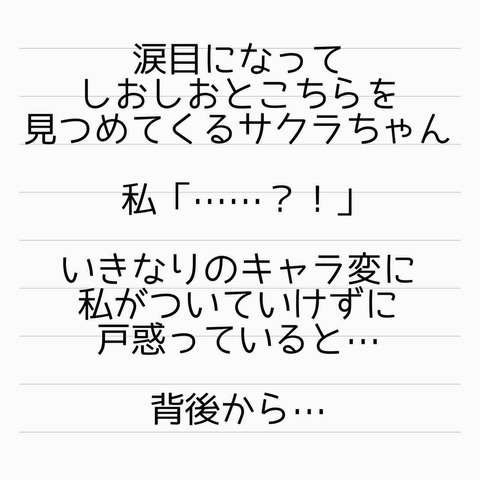 涙目になって
しおしおとこちらを
見つめてくるサクラちゃん
私「……？！」
いきなりのキャラ変に
私がついていけずに
戸惑っていると…
背後から…